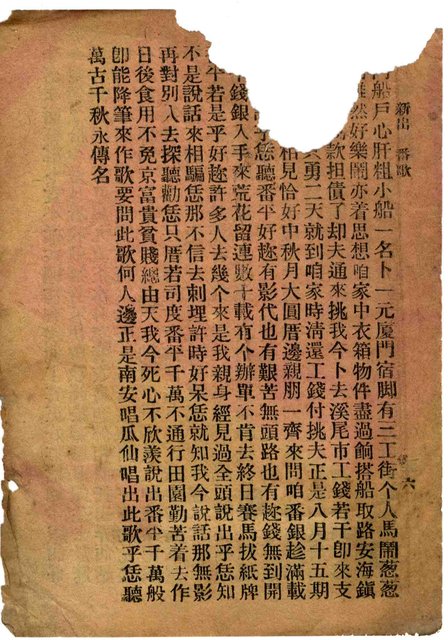 新出 番歌
六
船戶心肝粗小船一名卜一元廈門宿脚有三工街个人馬鬧葱葱
然好樂鬧亦着思想咱家中衣箱物件盡過餉搭船取路安海鎮
款担債了却夫通來挑我今卜去溪尾市工錢若干卽來支
勇二天就到咱家時淸還工錢付挑夫正是八月十五期
相見恰好中秋月大圓厝邊親朋一齊來問咱番銀趁滿載
乎恁聽番平好趁有影代也有艱苦無頭路也有趁錢無到開
錢銀入手來荒花留連數十載有个辦單不肯去終日賽馬拔紙牌
牛若是乎好趁許多人去幾个來是我親身經見過全頭說出乎恁知
不是說話來相騙恁那不信去刺埋許時好呆恁就知我今說話那無影
再對別人去探聽勸恁只厝若司度番平千萬不通行田園勤苦着去作
日後食用不免京富貴貧賤總由天我今死心不欣羨說出番平千萬般
卽能降筆來作歌要問此歌何人邊正是南安唱瓜仙唱出此歌乎恁聽
萬古千秋永傳名